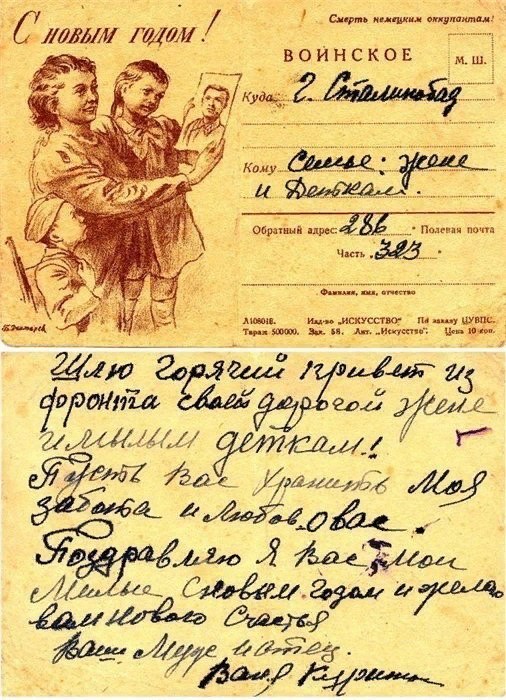 С новым годом!
Смерть немецким оккупантам!
ВОИНСКОЕ
М. Ш.
Куда г. Сталинобад
Кому семье: жене
и деткам.
Обратный адрес: 286 Полевая почта
Часть 323
Фамилия, имя, отчество
Изд-во „ИСКУССТВО“ По заказу ЦУВПС.
Тираж 500000. Зак. 58. „Искусство“. Цена 10 коп.
Шлю горячий привет из
фронта своей дорогой жене
и милым деткам!
Пусть Вас хранить моя
забота и любов о вас.
Поздравляю я Вас мои
милые с новым годом и желаю
вам нового счастья
Ваш муж и отец.
Ваня